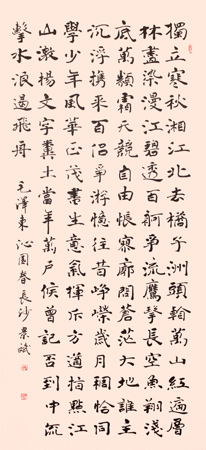 獨立寒秋湘江北去橘子洲頭看萬山紅遍層
林盡染漫江碧透百舸爭流鷹擊長空魚翔淺
底萬類霜天競自由悵寥廓問蒼茫大地誰主
沉浮攜來百侶曾游憶往昔崢嶸歲月稠恰同
學少年風華正茂書生意氣揮斥方遒指點江
山激揚文字糞土當年萬戶侯曾記否到中流
擊水浪遏飛舟 毛澤東沁園春長沙